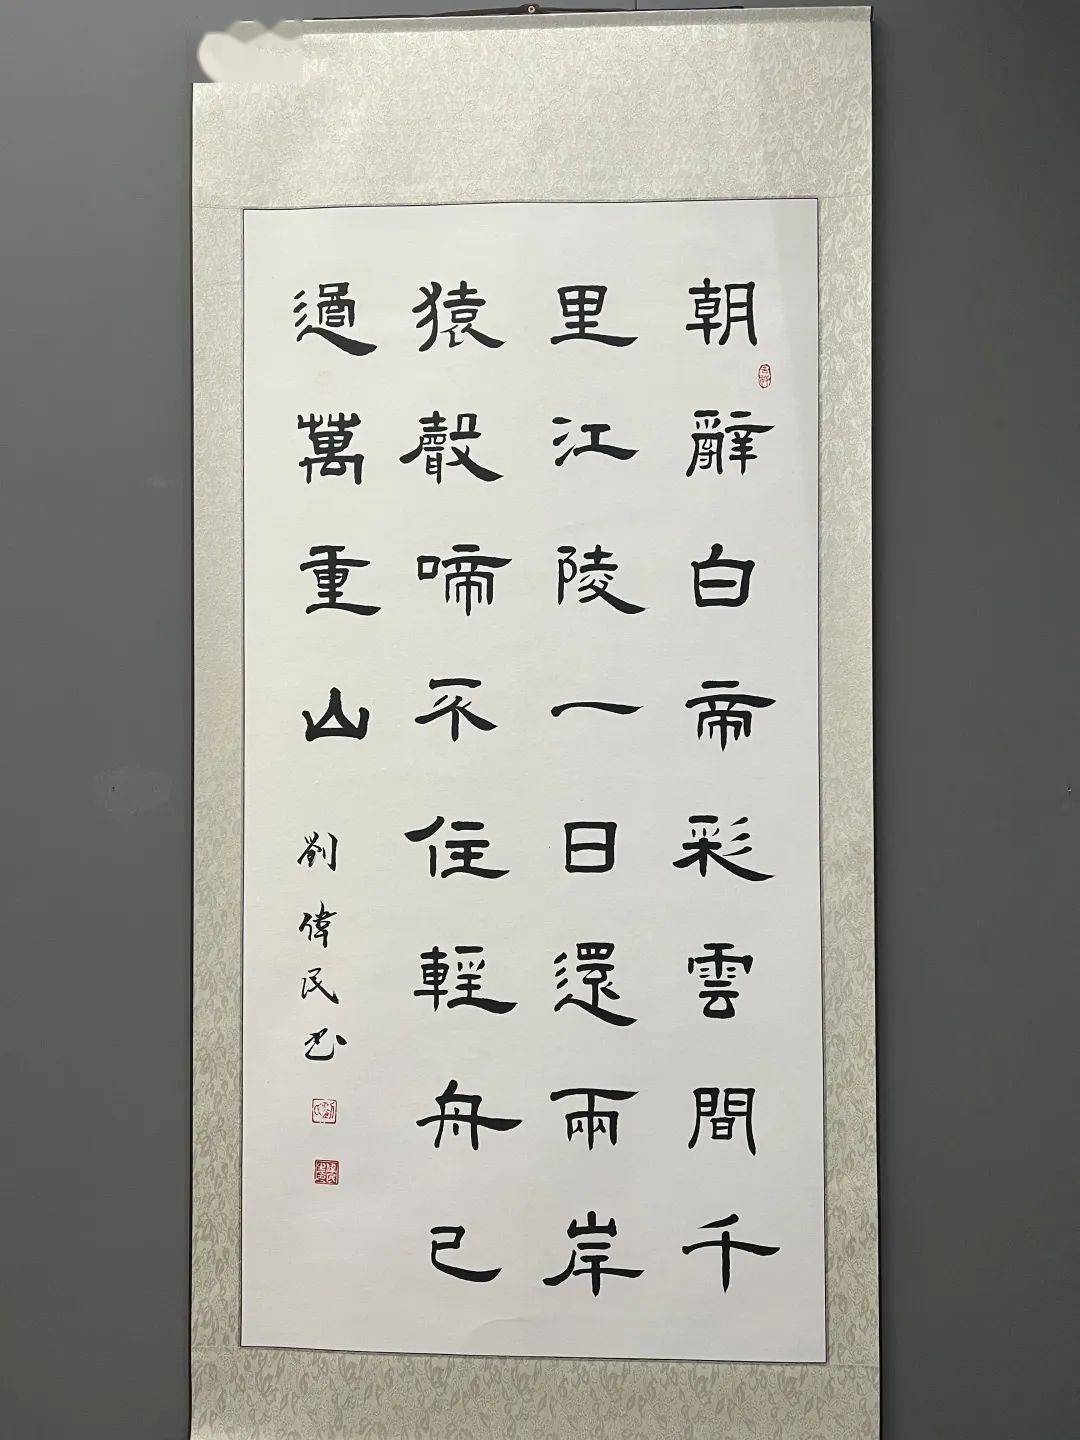 朝辭白帝彩雲間千
里江陵一日還兩岸
猿聲啼不住輕舟已
過萬重山
劉偉民书